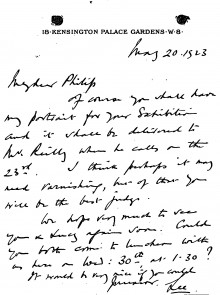 18·KENSINGTON PALACE GARDENS·W·8·
May 20. 1923
My dear Philip
Of course you shall have
my portrait for your Exhibition
and it shall be delivered to
Mr. Reilly when he calls on the
23rd. I think perhaps it may
need varnishing, but of this you
will be the best judge.
We hope very much to see
you & Lucy again soon. Could
you both come to luncheon with
us here on Wed: 30th at 1.30?
It would be very nice if you could
Lee